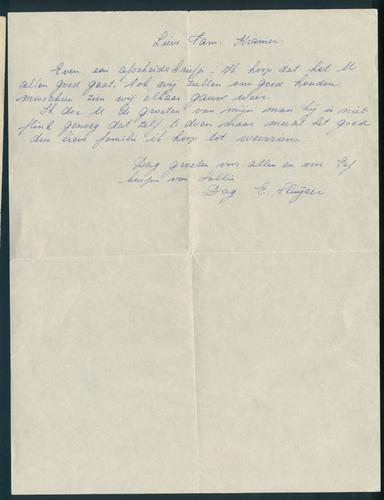 Lieve Fam: Kramer.
Even een afscheidsbriefje. Ik hoop dat het U
allen goed gaat. Ook wij zullen ons goed houden
misschien zien wij elkaar gauw weer.
Ik doe U de groeten van mijn man hij is niet
flink genoeg dat zelf te doen maar meent het goed
dus lieve familie ik hoop tot weerziens
Dag groeten ons allen en om Eef
kusjes van
Dag E.